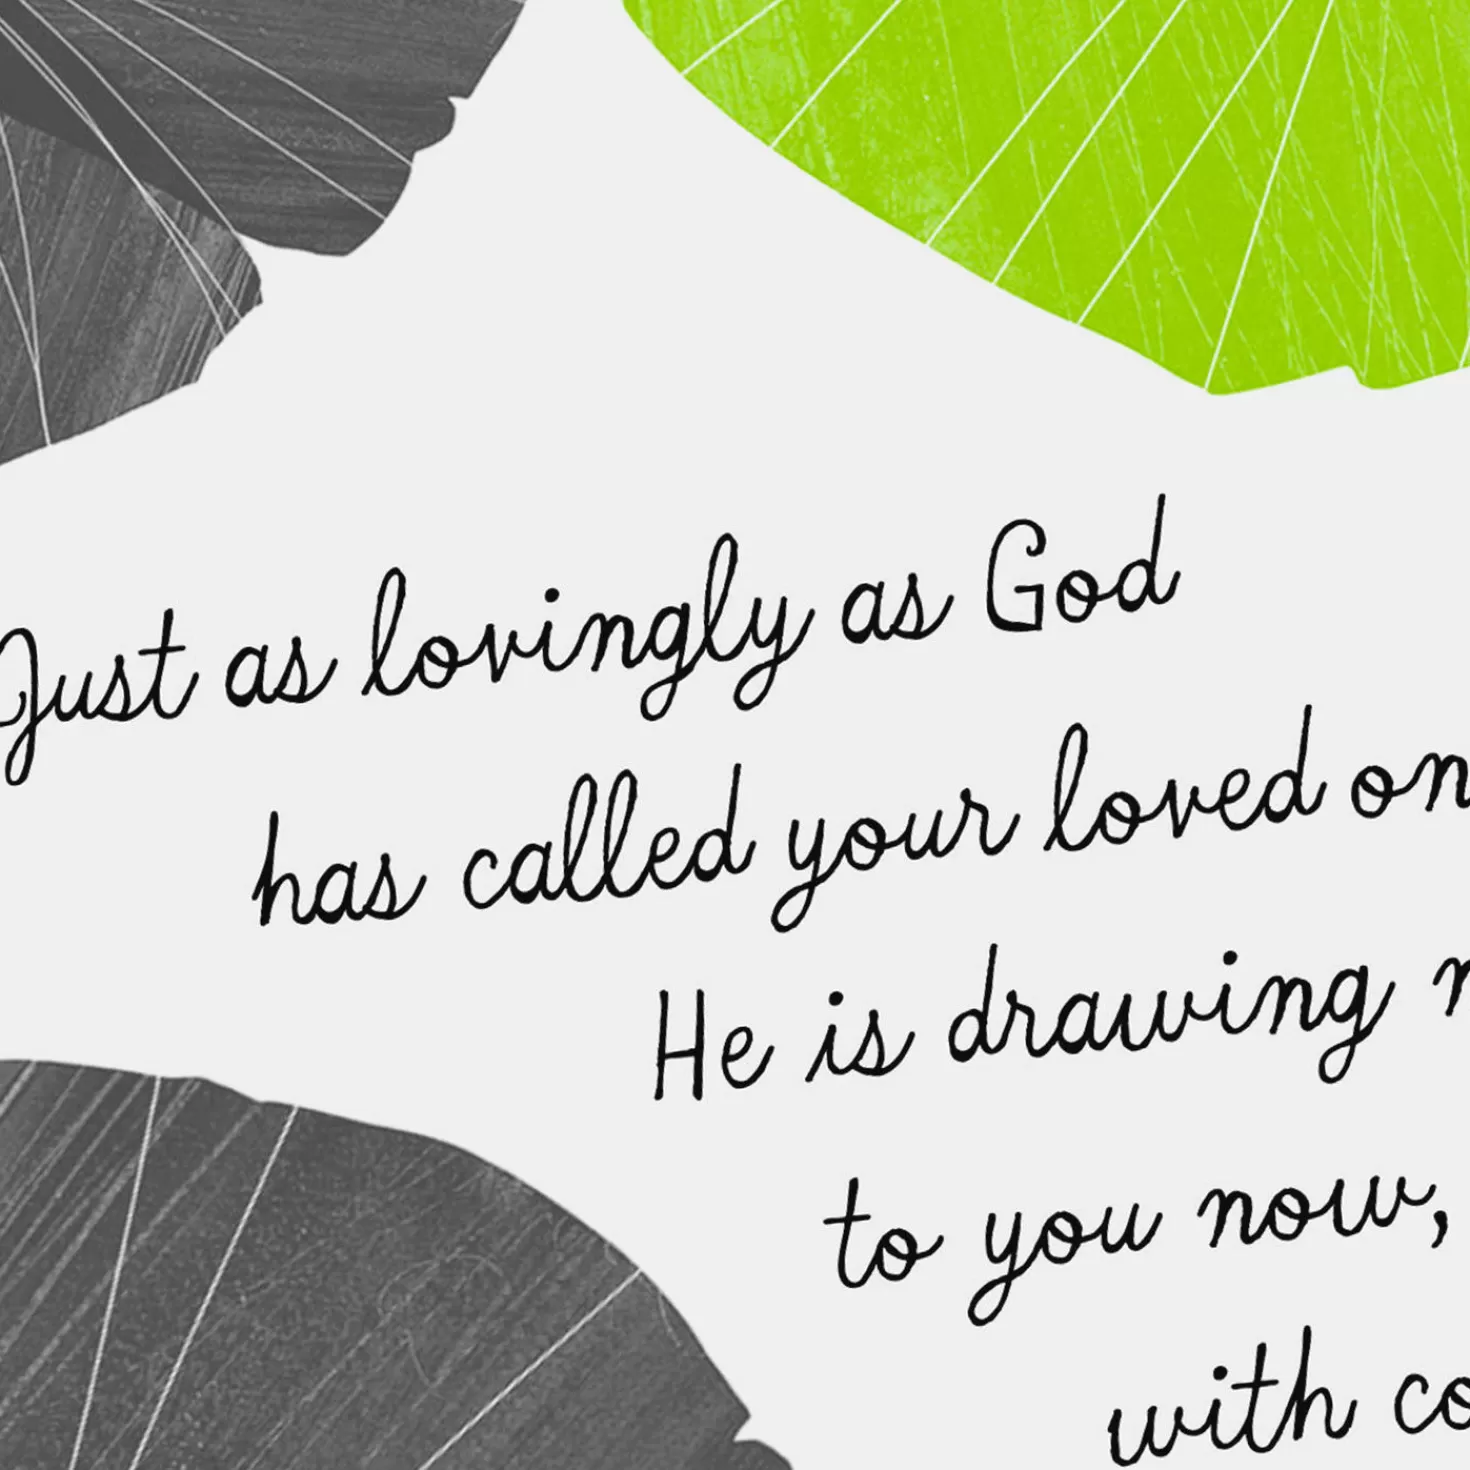 Just as lovingly as God
has called your loved on
He is drawing
to you now,
with co